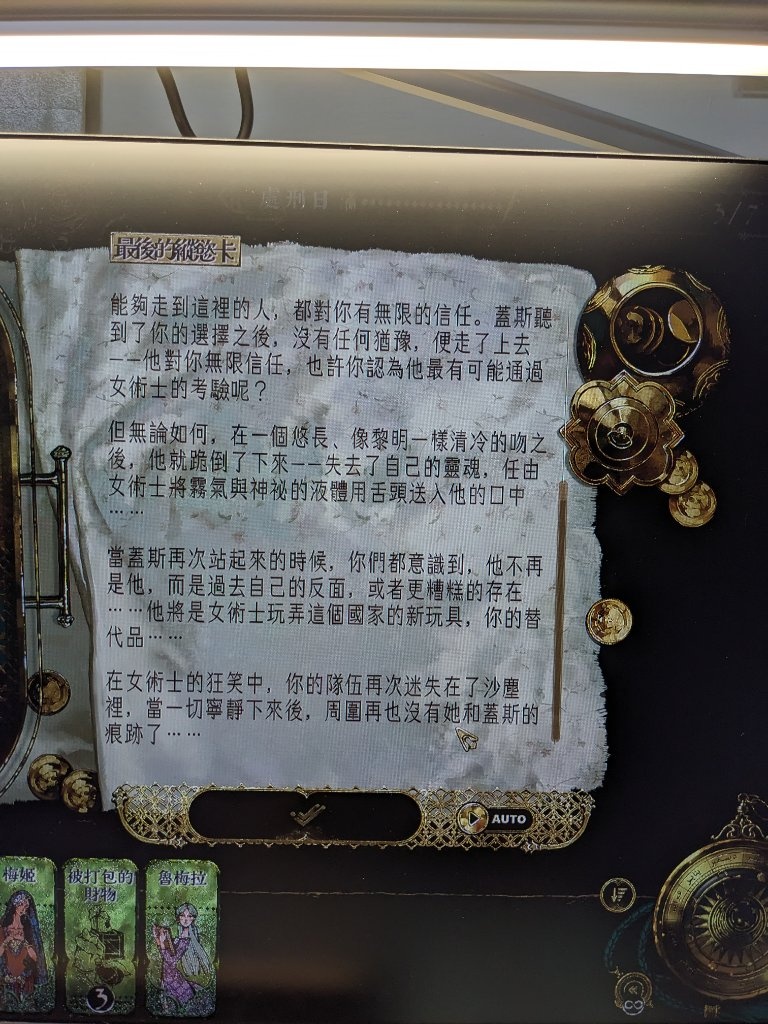 處刑日
3/7
最後的縱慾卡
能夠走到這裡的人，都對你有無限的信任。蓋斯聽
到了你的選擇之後，沒有任何猶豫，便走了上去
——他對你無限信任，也許你認為他最有可能通過
女術士的考驗呢？
但無論如何，在一個悠長、像黎明一樣清冷的吻之
後，他就跪倒了下來——失去了自己的靈魂，任由
女術士將霧氣與神祕的液體用舌頭送入他的口中
……
當蓋斯再次站起來的時候，你們都意識到，他不再
是他，而是過去自己的反面，或者更糟糕的存在
……他將是女術士玩弄這個國家的新玩具，你的替
代品……
在女術士的狂笑中，你的隊伍再次迷失在了沙塵
裡，當一切寧靜下來後，周圍再也沒有她和蓋斯的
痕跡了……
AUTO
梅姬
被打包的
財物
3
魯梅拉